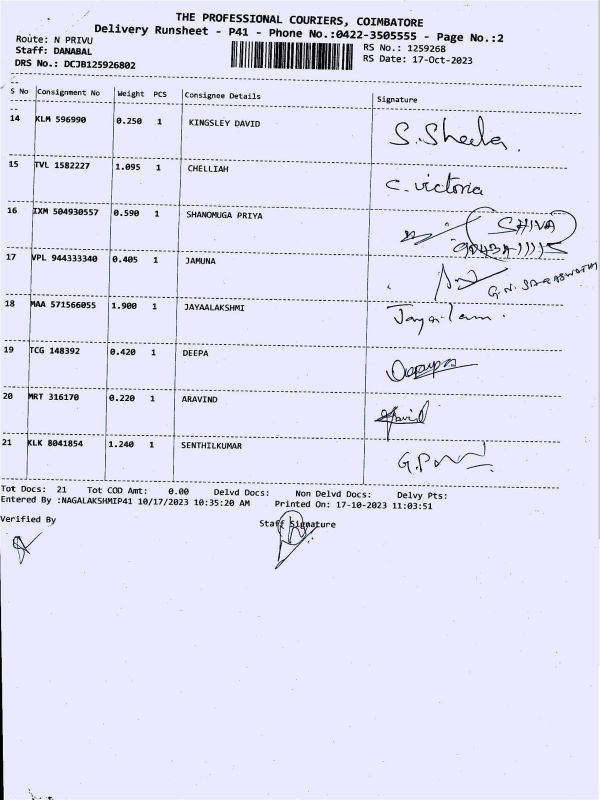 THE PROFESSIONAL COURIERS, COIMBATORE
Delivery Runsheet - P41 - Phone No.:0422-3505555 - Page No.:2
Route: N PRIVU
RS No.: 1259268
Staff: DANABAL
RS Date: 17-Oct-2023
DRS No.: DCJB125926802
S No Consignment No Weight PCS Consignee Details Signature
14 KLM 596990 0.250 1 KINGSLEY DAVID S. Sheela.
15 TVL 1582227 1.095 1 CHELLIAH C. victoria
16 IXM 504930557 0.590 1 SHANOMUGA PRIYA SHIVA
17 VPL 944333340 0.405 1 JAMUNA G.N. SARASWATHI
18 MAA 571566055 1.900 1 JAYAALAKSHMI
19 TCG 148392 0.420 1 DEEPA
20 MRT 316170 0.220 1 ARAVIND
21 KLK 8041854 1.240 1 SENTHILKUMAR
Tot Docs: 21 Tot COD Amt: 0.00 Delvd Docs: Non Delvd Docs: Delvy Pts:
Entered By :NAGALAKSHMIP41 10/17/2023 10:35:20 AM Printed On: 17-10-2023 11:03:51
Verified By Staff Signature